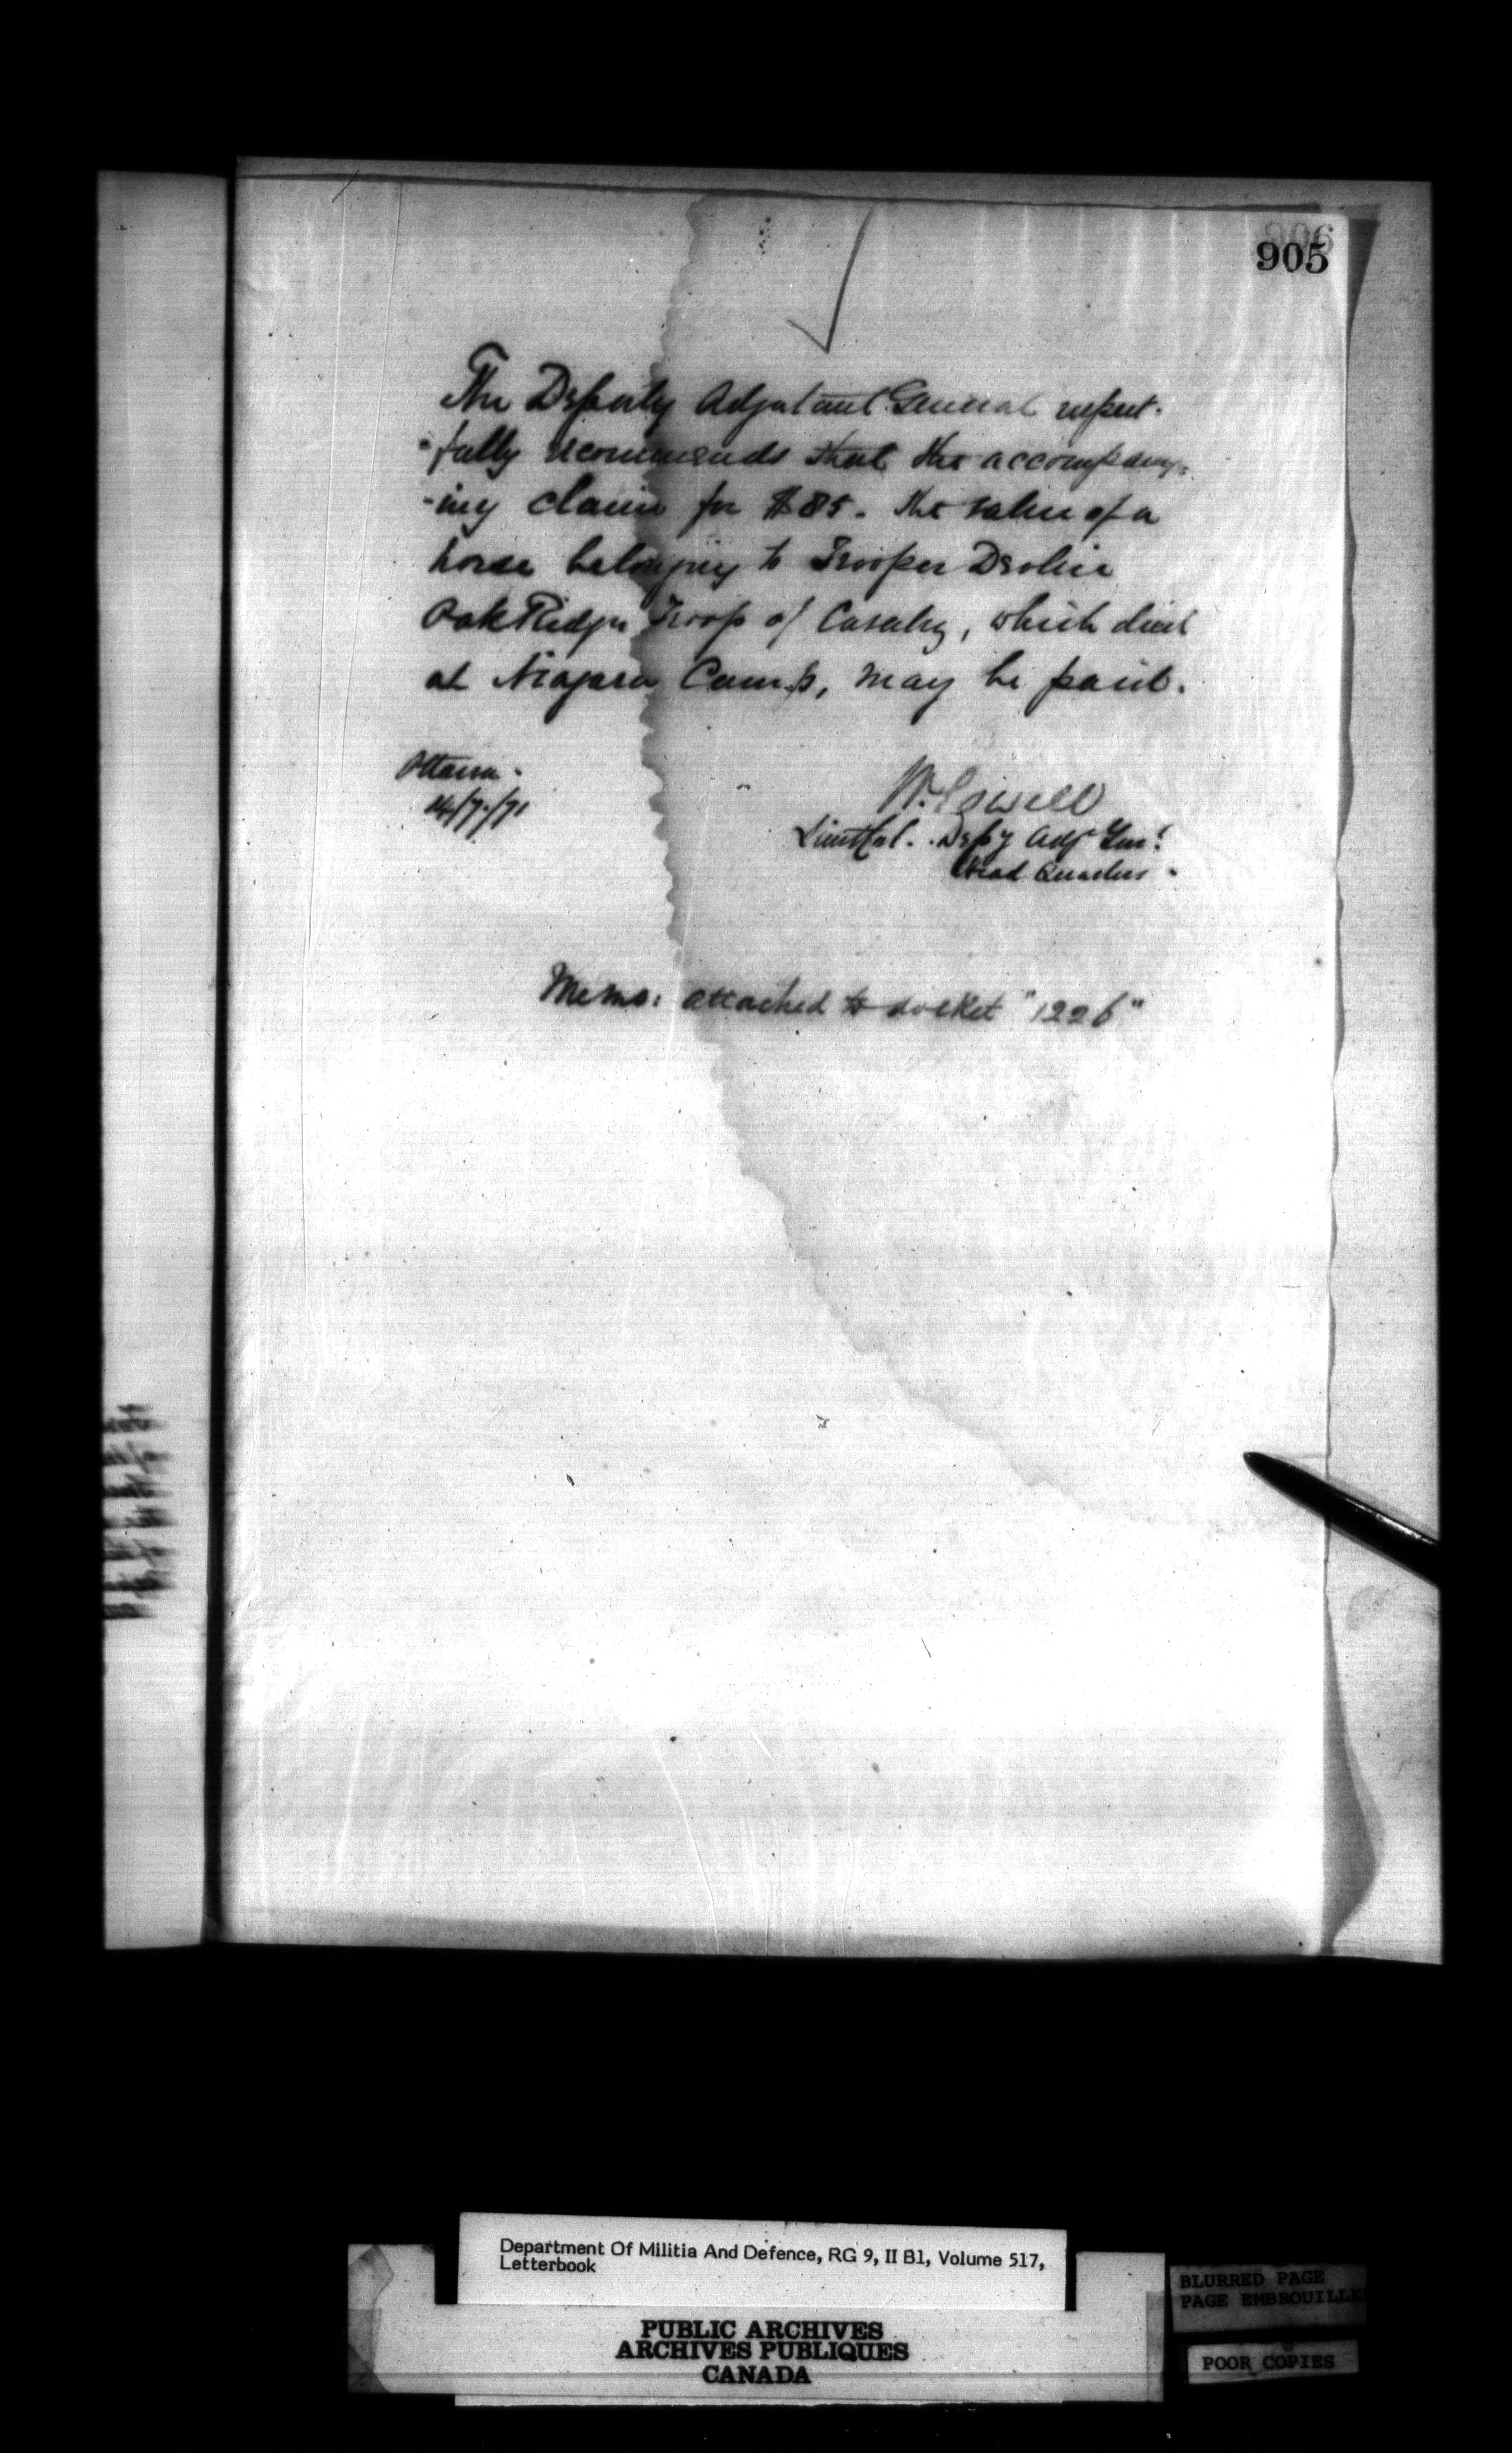 906
905
The Deputy Adjutant General respect-
-fully recommends that the accompany-
-ing claim for $85. the value of a
horse belonging to Trooper
Oak Ridges Troop of Cavalry, which died
at Niagara Camp, may be paid.
Ottawa.
14/7/71
W. Powell
Lieut Col. Depy Adjt Genl
Head Quarters.
Memo: attached to docket "1226"
Department Of Militia And Defence, RG 9, II B1, Volume 517,
Letterbook
PUBLIC ARCHIVES
ARCHIVES PUBLIQUES
CANADA
BLURRED PAGE
PAGE EMBROUILLE
POOR COPIES